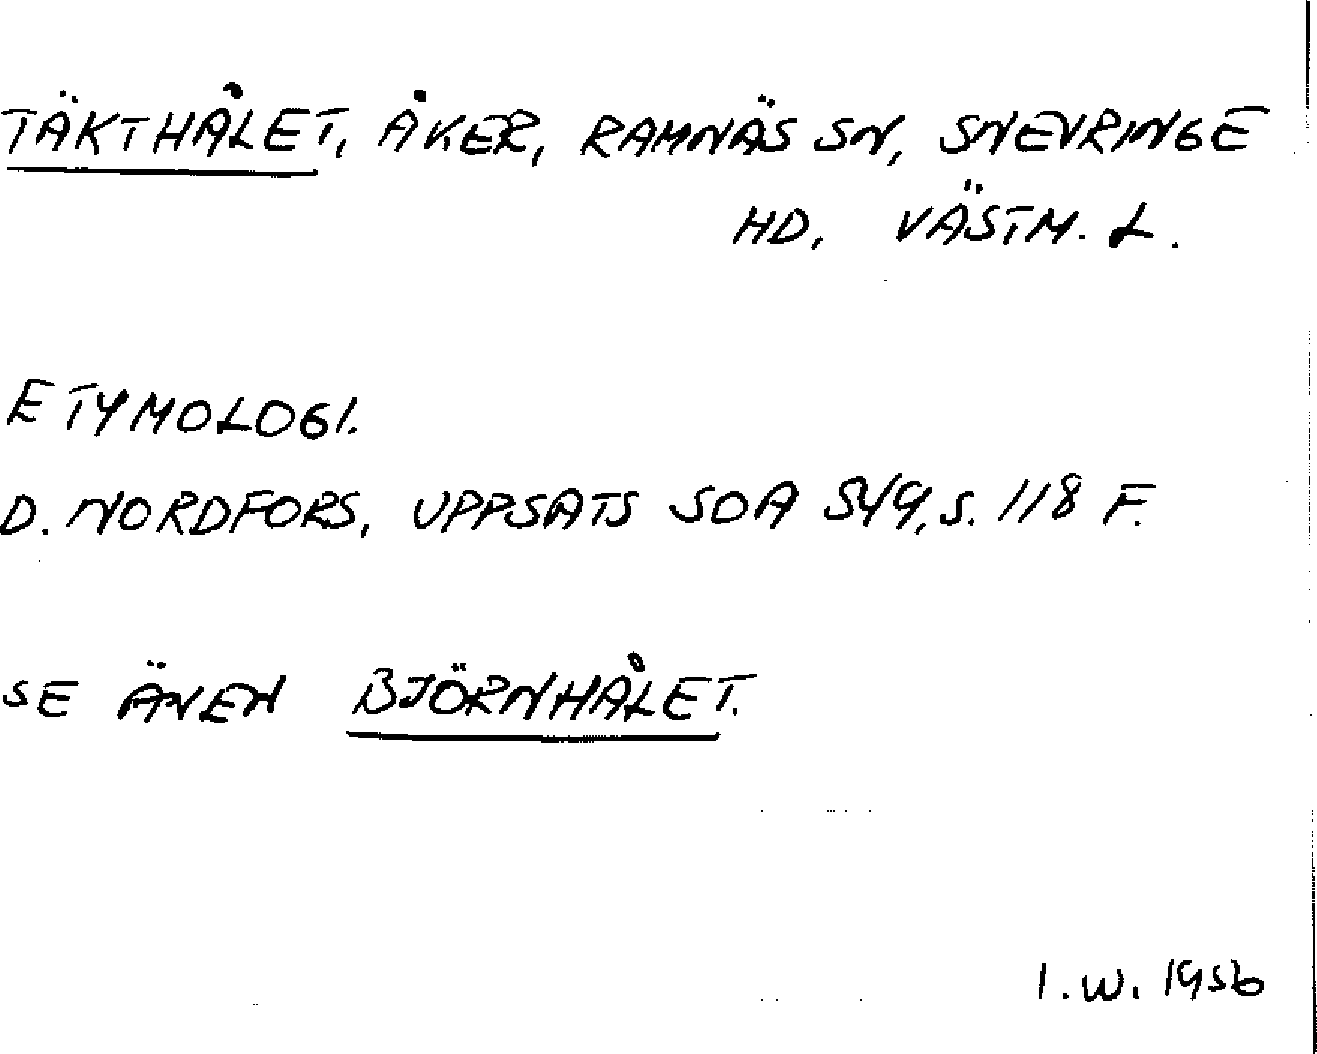 TÄKTHÅLET, ÅKER, RAMNÄS SN, SNEVRINGE
HD, VÄSTM. L.
ETYMOLOGI.
D. NORDFORS, UPPSATS SOA 549, S. 118 F.
SE ÄVEN BJÖRNHÅLET.
I. W. 1956